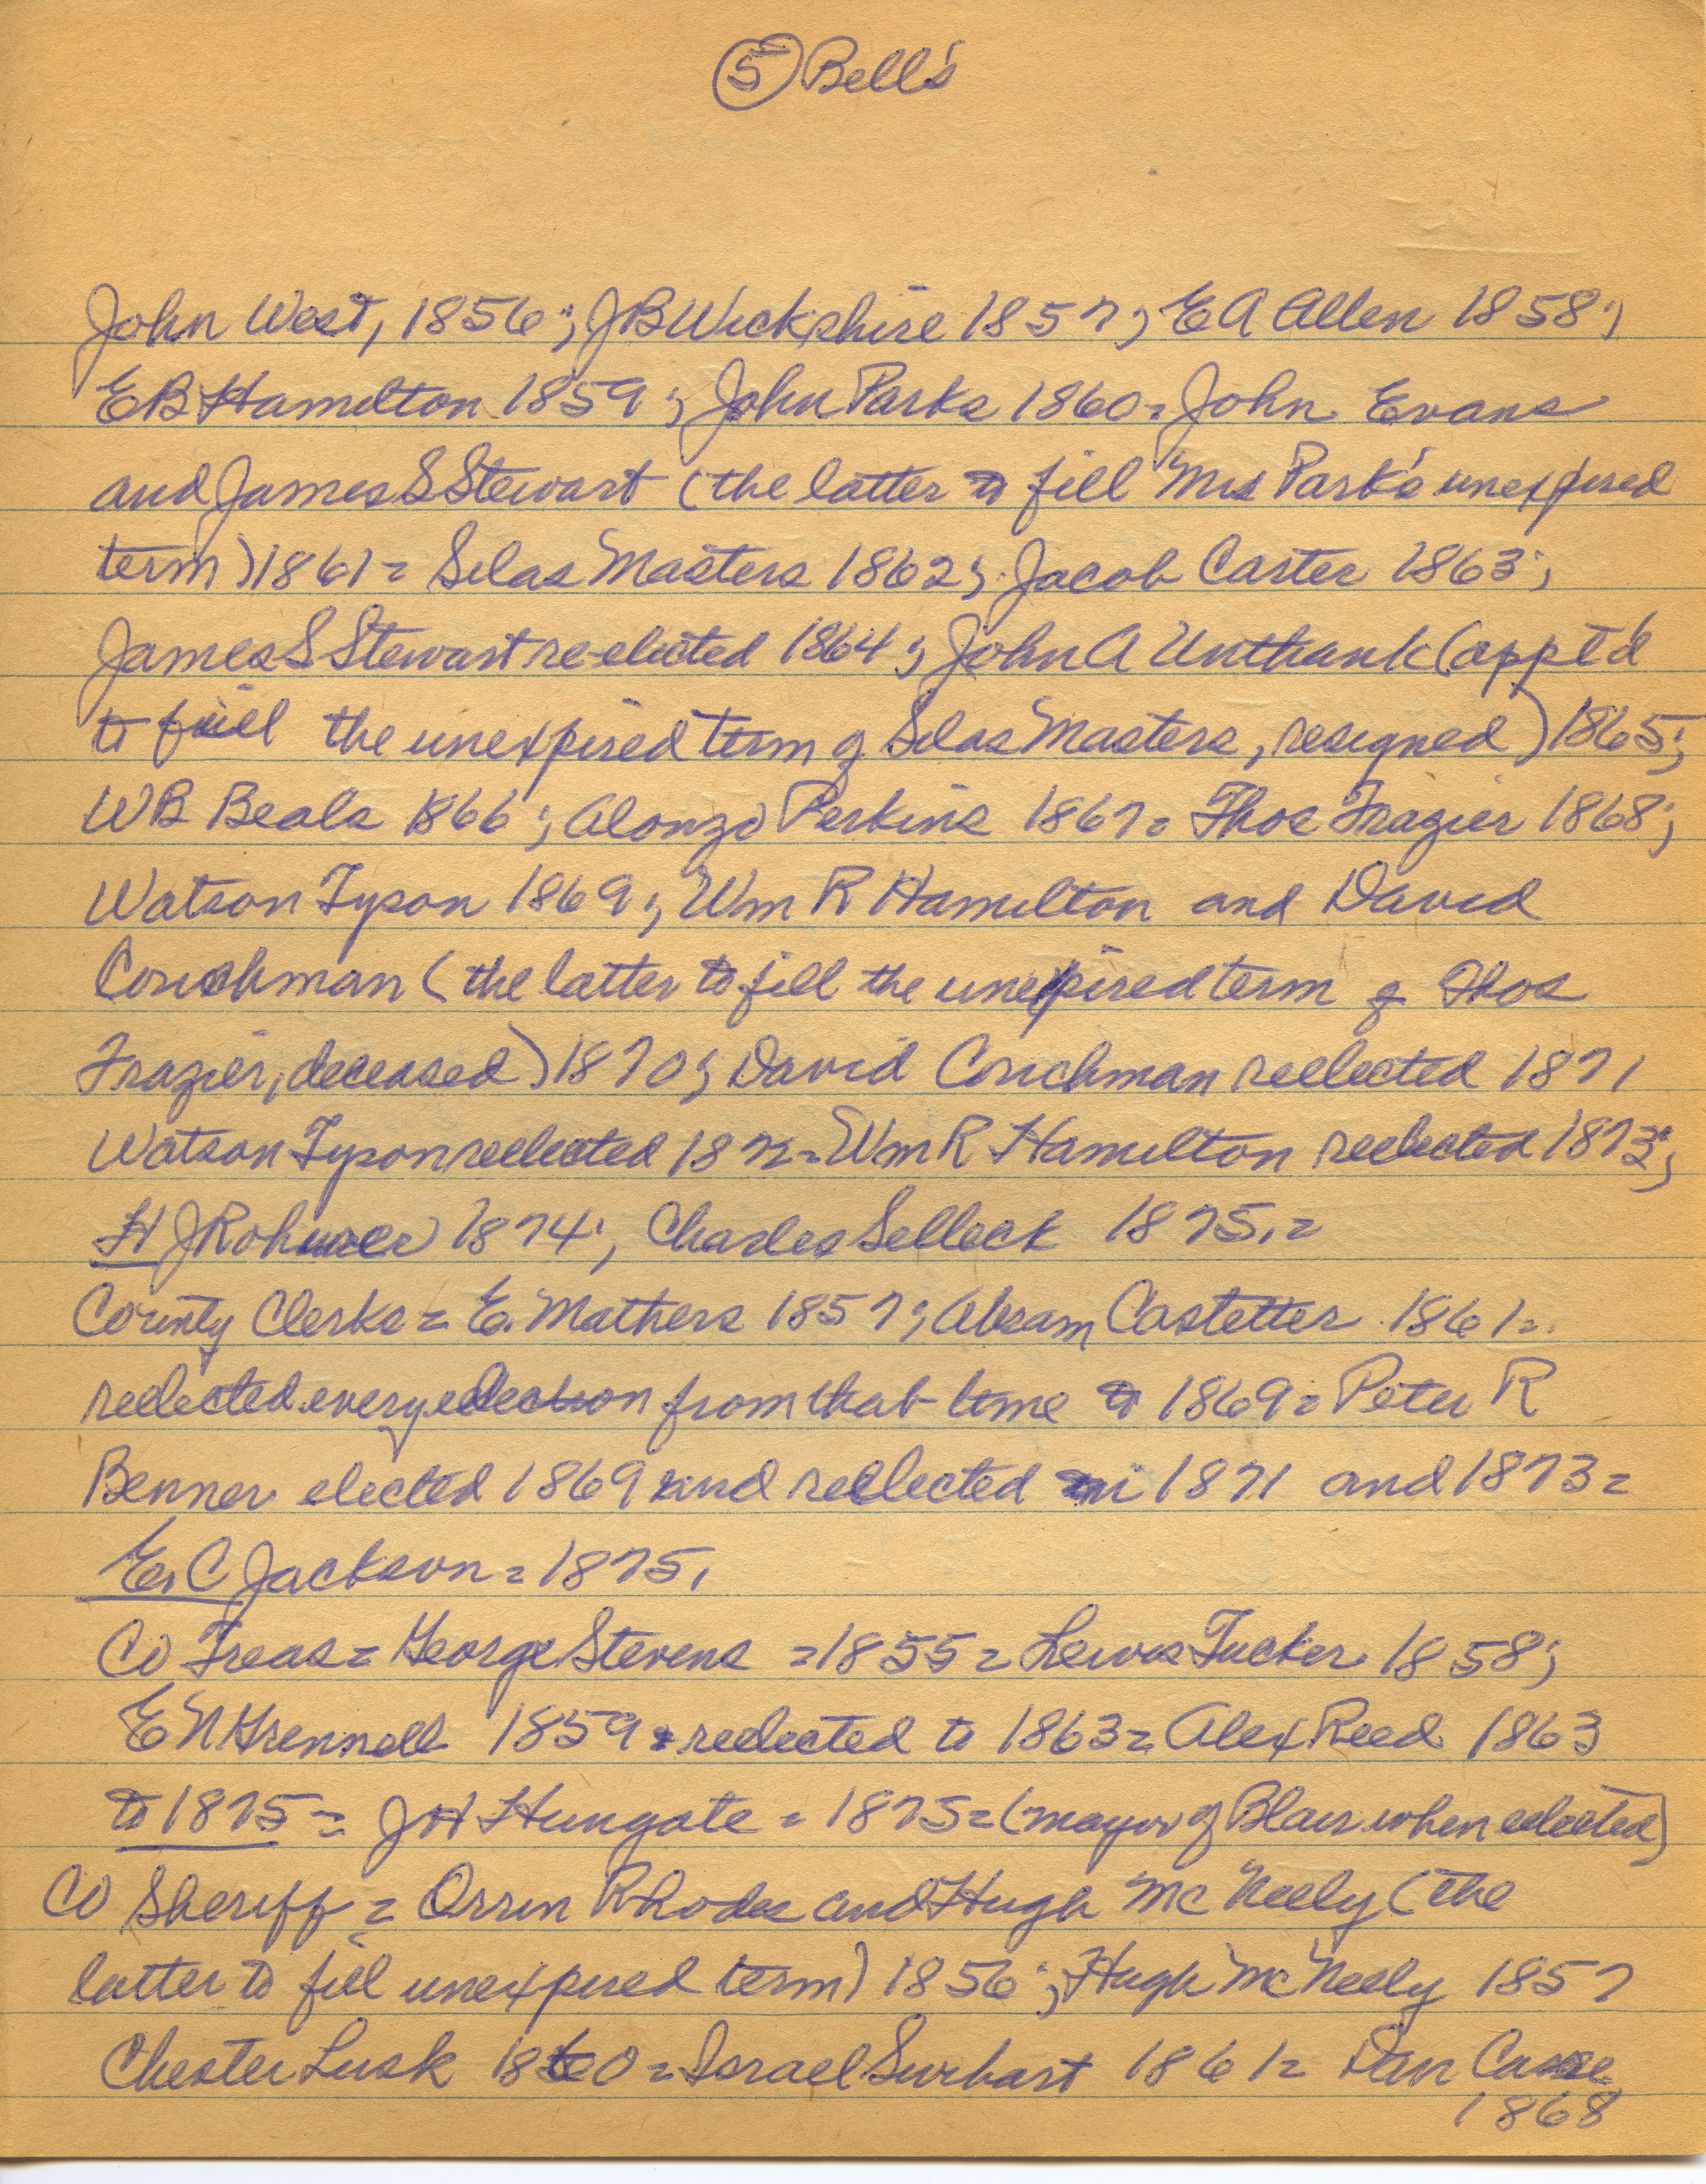 (5) Bell's
John West, 1856; J B Wickshire 1857; E A Allen 1858;
E B Hamilton 1859; John Parks 1860 = John Evans
and James S Stewart (the latter to fill Mrs Park's unexpired
term) 1861 = Selas Masters 1862; Jacob Carter 1863;
James S Stewart re-elected 1864; John A Unthank (appt'd
to fill the unexpired term of Selas Masters, resigned) 1865;
W B Beals 1866; Alonzo Perkins 1867 = Thos Frazier 1868;
Watson Tyson 1869; Wm R Hamilton and David
Couchman (the latter to fill the unexpired term of Thos
Frazier, deceased) 1870; David Couchman reelected 1871
Watson Tyson reelected 1872 = Wm R Hamilton reelected 1873;
H J Rohwer 1874; Charles Selleck 1875. =
County Clerks = E. Mathers 1857; Abram Castetter 1861 =
reelected every election from that time to 1869 = Peter R
Benner elected 1869 and reelected in 1871 and 1873 =
E. C Jackson = 1875,
Co Treas = George Stevens = 1855 = Lewis Tucker 1858;
E N Grennell 1859 & reelected to 1863 = Alex Reed 1863
to 1875 = J H Hungate = 1875 = (mayor of Blair when elected)
Co Sheriff = Orrin Rhodes and Hugh McNeely (the
latter to fill unexpired term) 1856; Hugh McNeely 1857
Chester Lusk 1860 = Israel Swihart 1861 = Dan Case
1868